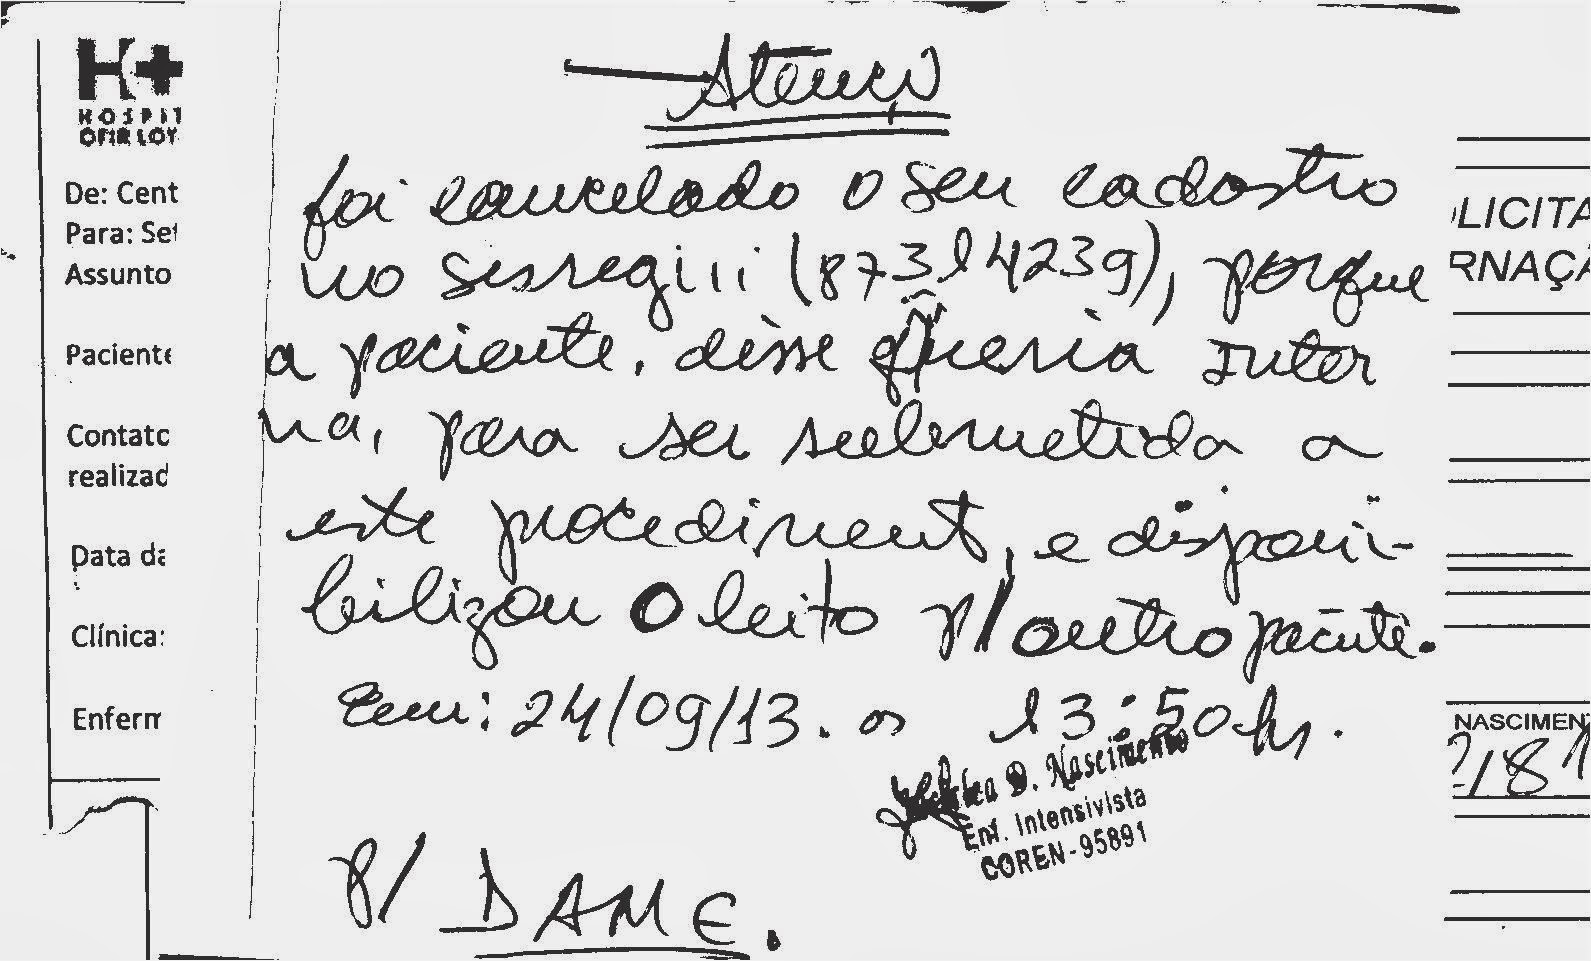 HOSPIT
OFIR LOY
De: Cent
Para: Set
Assunto
Paciente
Contato
realizad
Data da
Clínica:
Enferm
Atençõ
foi cancelado o seu cadastro
no sisregiii (87314239), porque
a paciente, disse q̃ queria inter
na, para ser submetida a
este procediment, e disponi-
bilizou o leito p/ outro paciente.
Em: 24/09/13. as 13:50hs.
D. Nascimento
Enf. Intensivista
COREN-95891
P/ DAME.
LICITA
RNAÇÃ
NASCIMEN